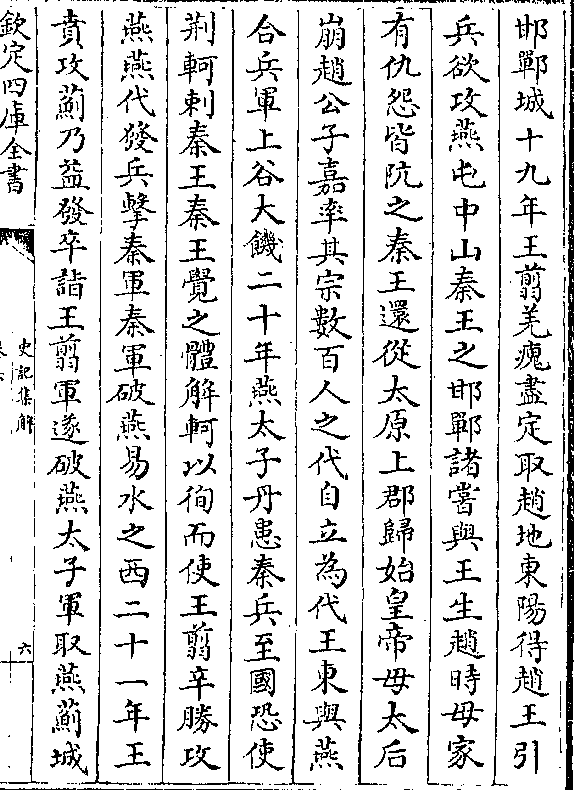 邯鄲城十九年王翦羌瘣盡定取趙地東陽得趙王引
兵欲攻燕屯中山秦王之邯鄲諸嘗與王生趙時母家
有仇怨皆阬之秦王還從太原上郡歸始皇帝母太后
崩趙公子嘉率其宗數百人之代自立為代王東與燕
合兵軍上谷大饑二十年燕太子丹患秦兵至國恐使
荆軻刺秦王秦王覺之體解軻以徇而使王翦辛勝攻
燕燕代發兵擊秦軍秦軍破燕易水之西二十一年王
賁攻薊乃益發卒詣王翦軍遂破燕太子軍取燕薊城
欽定四庫全書
史記集解
六